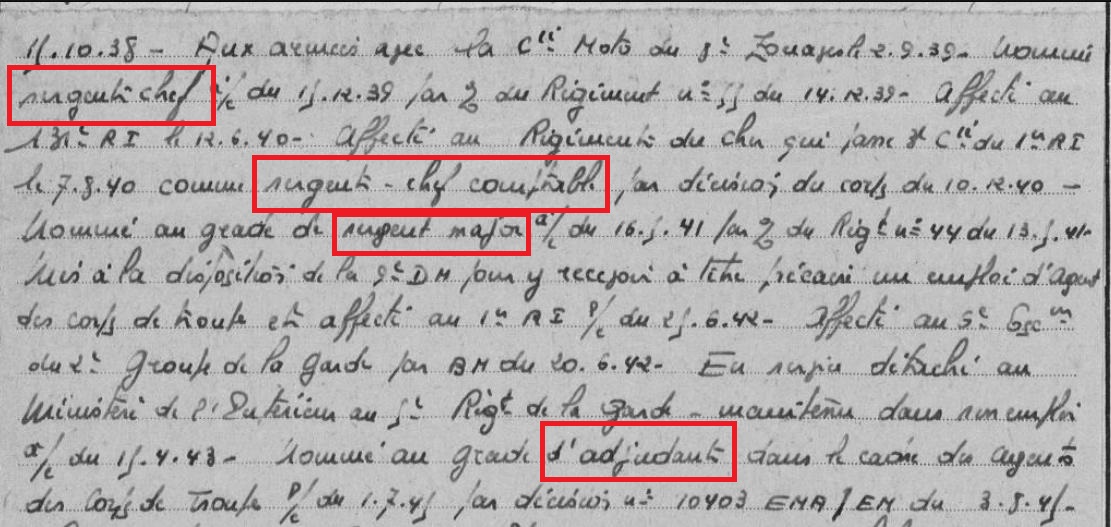 15.10.38 - Aux armées avec la Cie Moto du 8e Zouaves le 2.9.39 - Nommé
sergent chef a/c du 15.12.39 par O du Régiment n° 55 du 14.12.39 - Affecté au
131e RI le 12.6.40 - Affecté au Régiment du Cher qui forme 8e Cie du 1er RI
le 7.8.40 comme sergent - chef comptable par décision du corps du 10.12.40 -
Nommé au grade de sergent major a/c du 16.5.41 par O du Régt n° 44 du 13.5.41 -
Mis à la disposition de la 9e DM pour y recevoir à titre précaire un emploi d'Agent
des corps de troupe et affecté au 1er RI p/c du 25.6.42 - Affecté au 5e Escon
du 2e Groupe de la garde par BM du 20.6.42 - En service détaché au
Ministère de l'Intérieur au 5e Régt de la Garde - maintenu dans son emploi
a/c du 15.4.43 - Nommé au grade d'adjudant dans le cadre des agents
des Corps de Troupe p/c du 1.7.45 par décision n° 10403 EMA/EM du 3.8.45 -